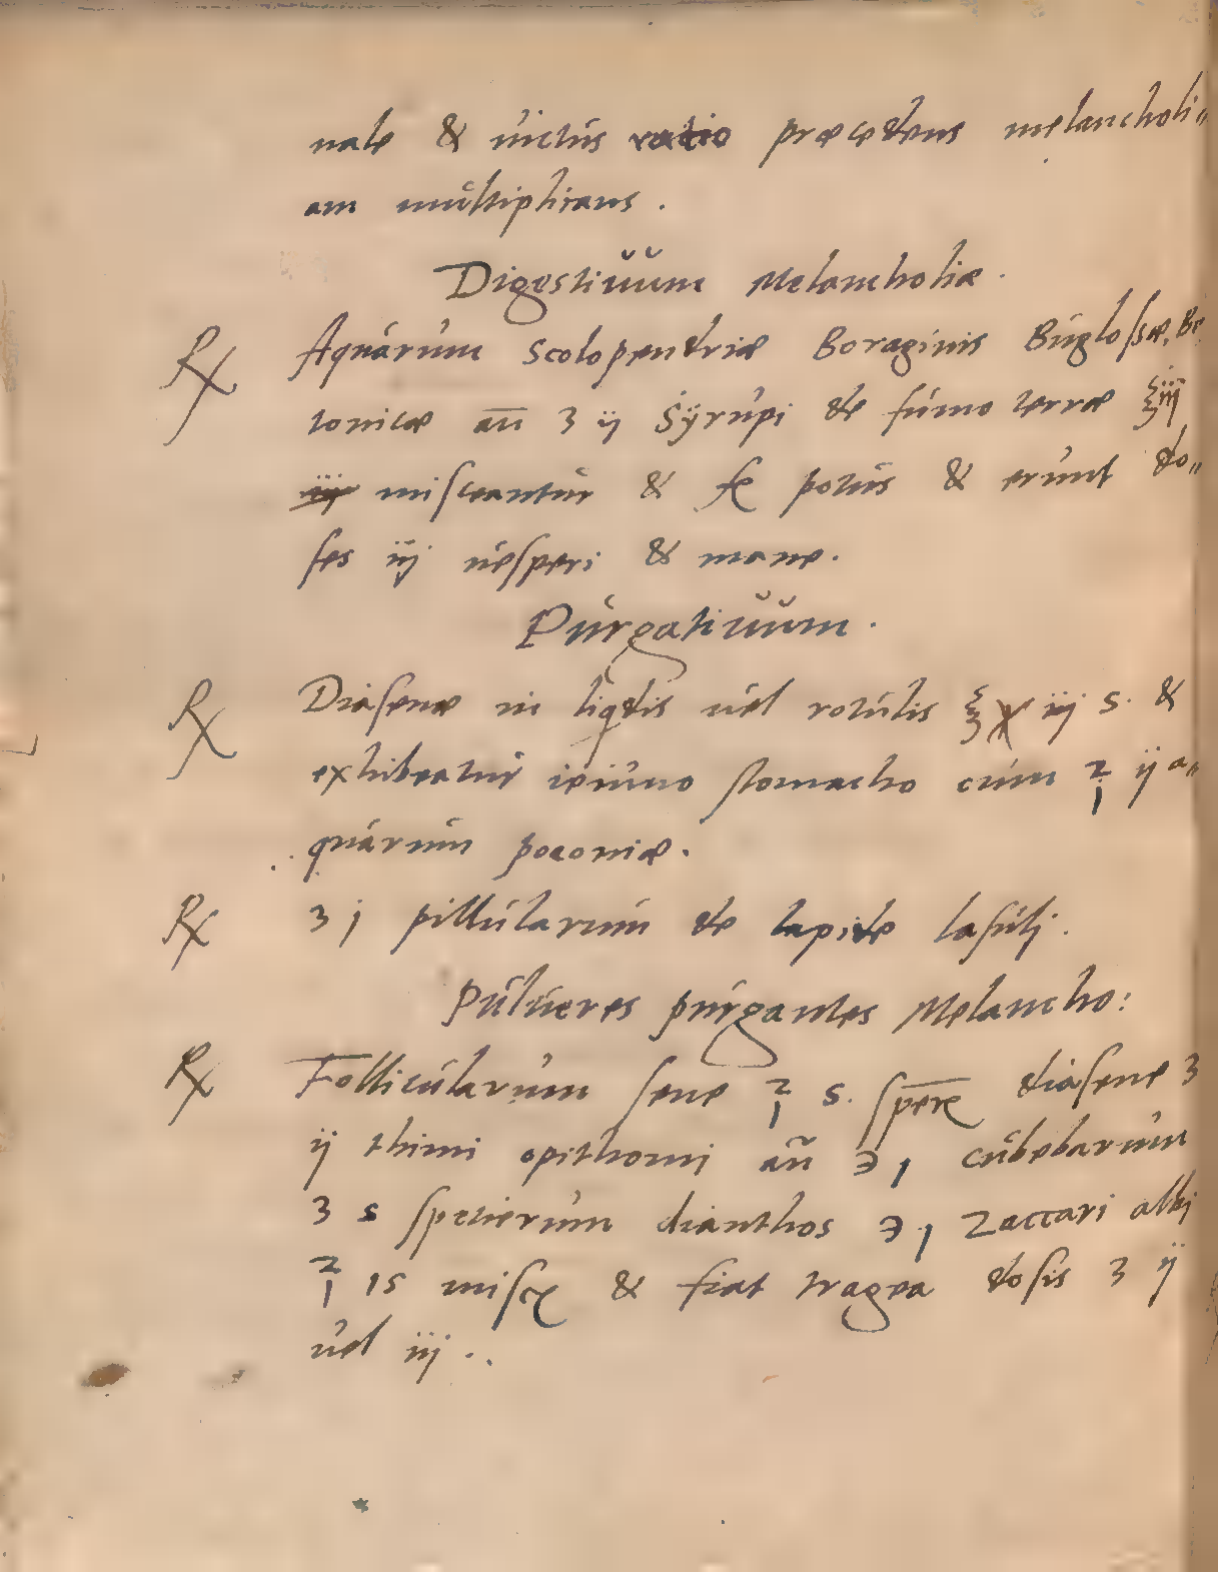 nale & uictus ratio præcedens melancholi„
am multiplicans.
Digestiuum Melancholiæ.
℞ Aquarum scolopendriæ Boraginis Buglossæ, Be
tonicæ an̄ ʒ ij Syrupi de fumo terræ ℥iij
iij misceantur & fe potus & erunt do„
ses iij uesperi & mane.
Purgatiuum.
℞ Diasenæ in liqdis uel rotulis ℥ iij s. &
exhibeatur ieiuno stomacho cum ℥ ij a„
quarum poeoniæ.
℞ ʒ j pillularum de lapide lasulj.
Pulueres purgantes Melancho:
℞ Follicularum sene ℥ s. spēre diasene ʒ
ij thimi epithomi an̄ ℈ j cubebarum
ʒ s spetierum dianthos ℈ j Zaccari albj
℥ is misce & fiat tragea dosis ʒ ij
uel iij..